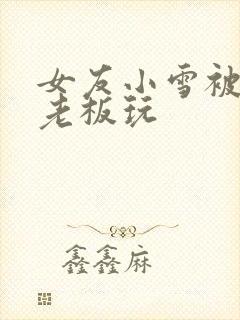 女友小雪被
老板玩
鑫鑫麻